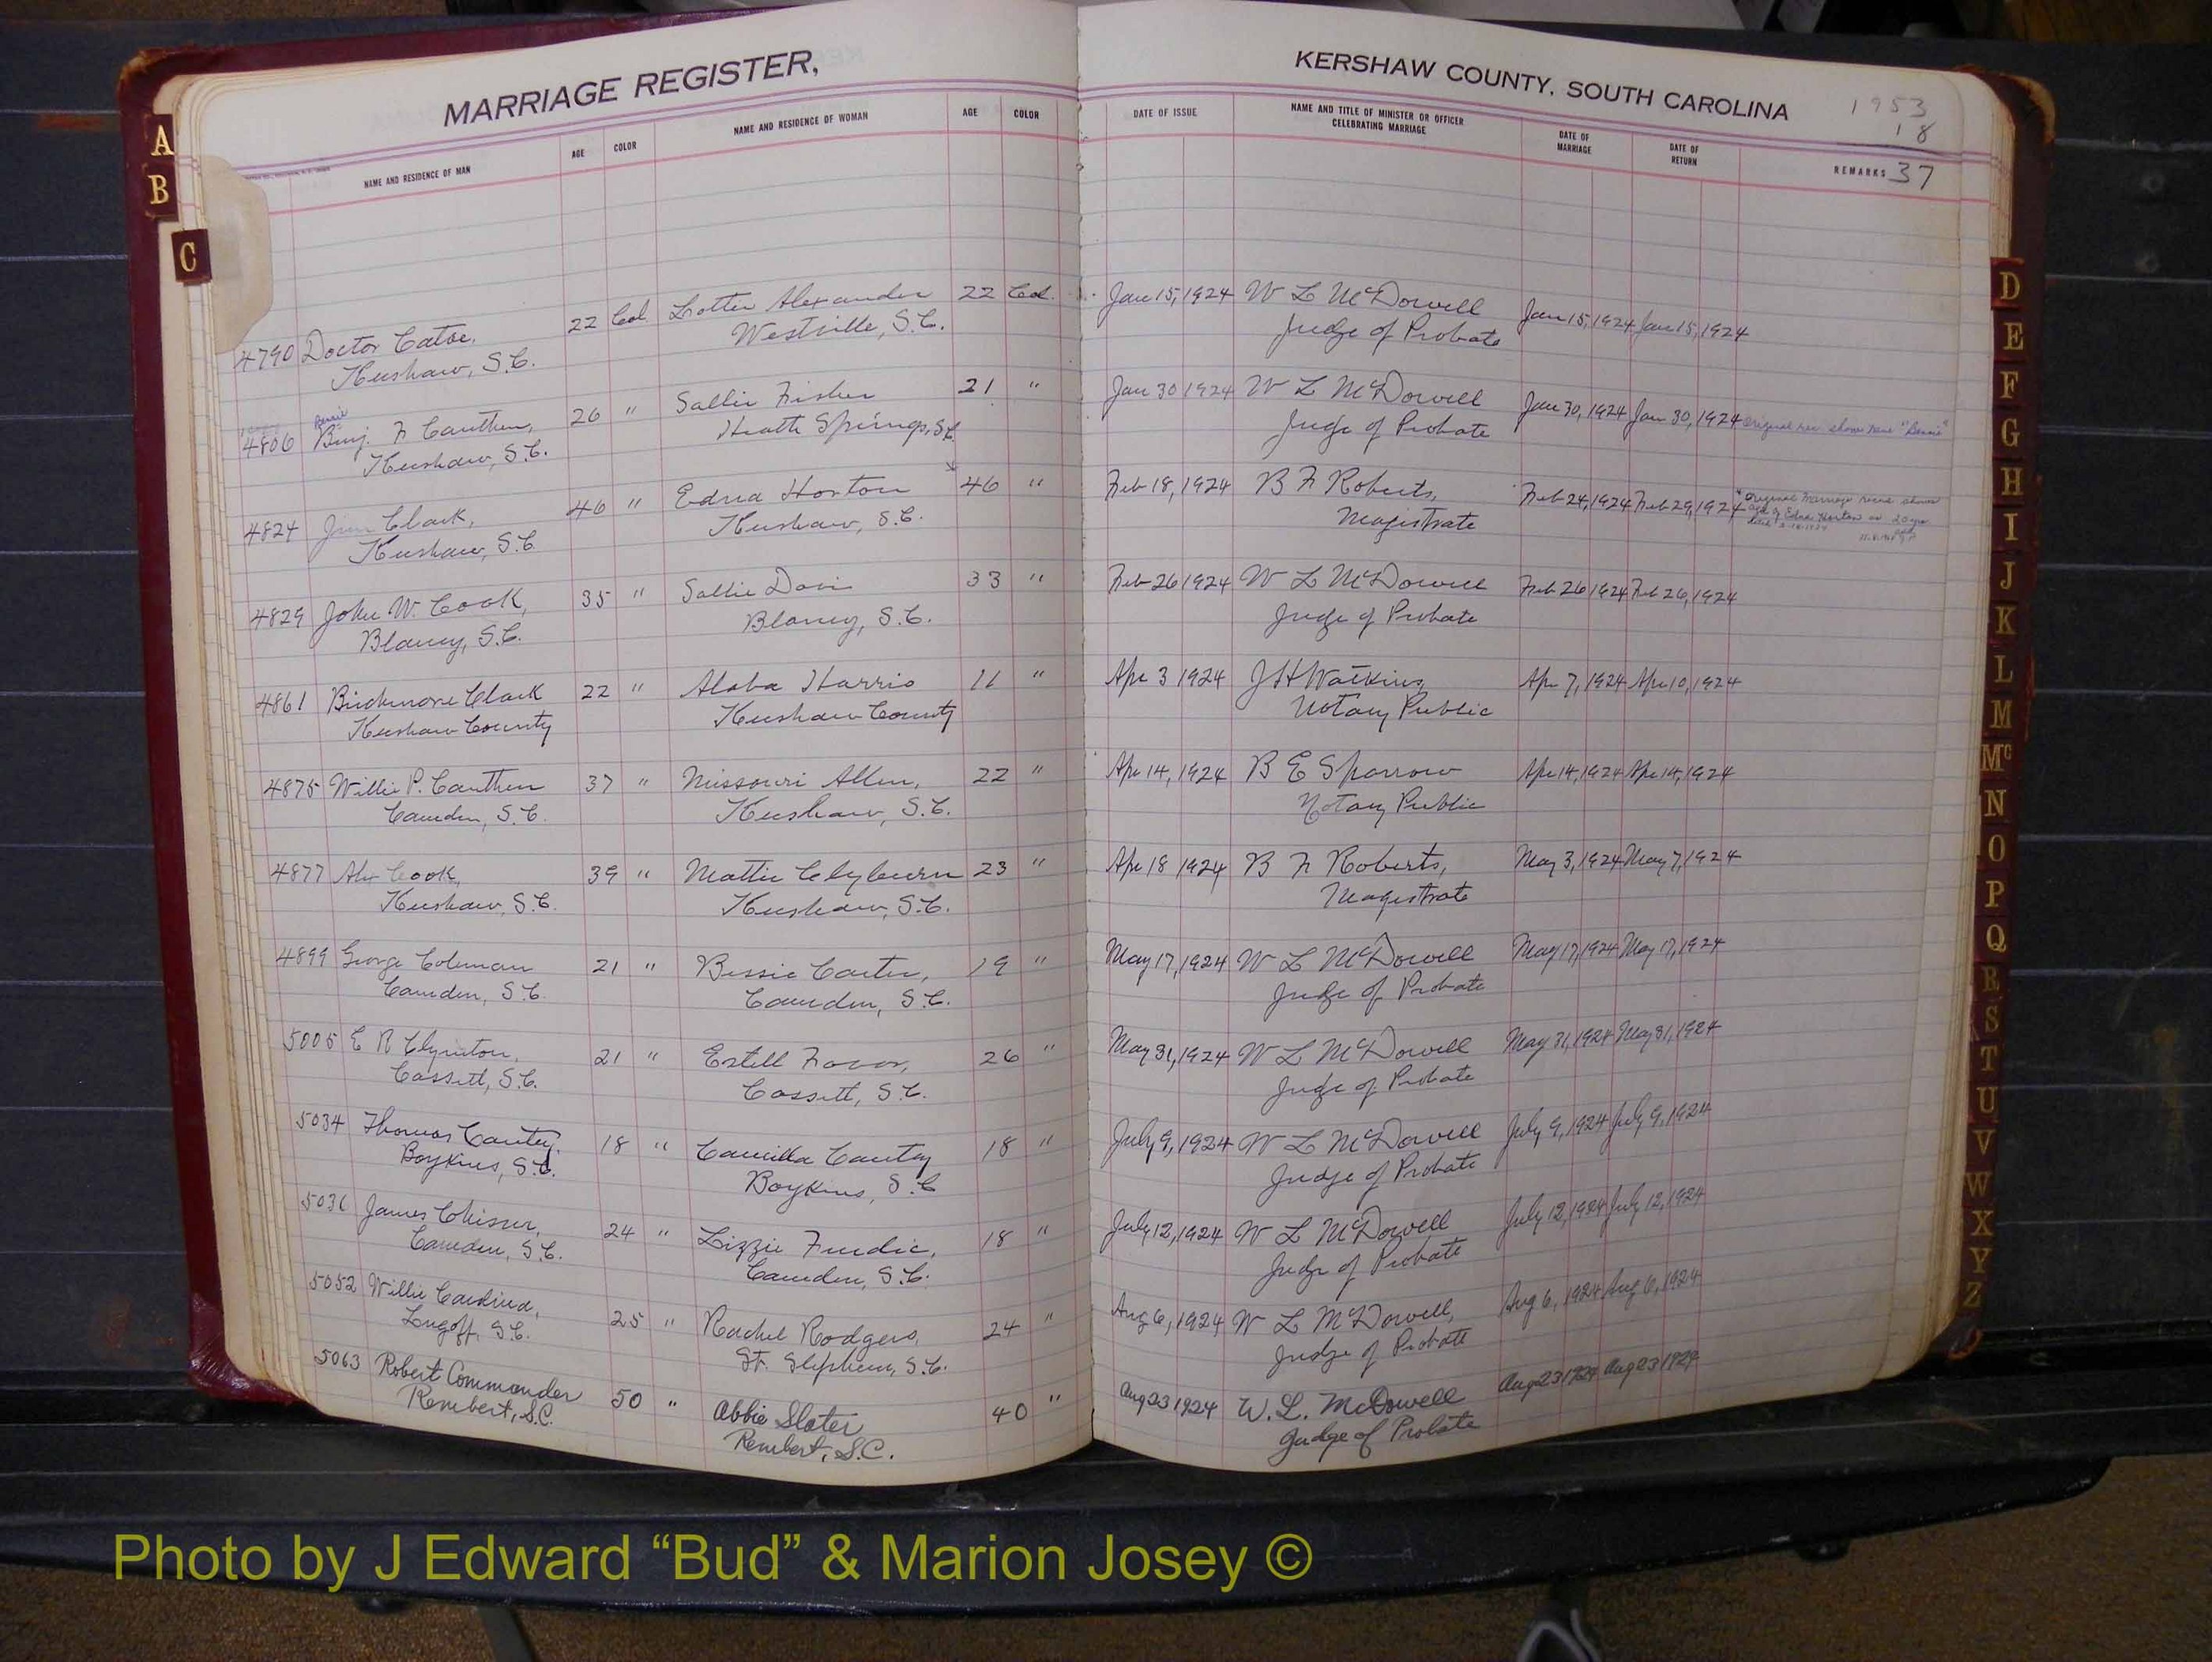 MARRIAGE REGISTER,
KERSHAW COUNTY, SOUTH CAROLINA
1953
18
37
NAME AND RESIDENCE OF MAN
AGE
COLOR
NAME AND RESIDENCE OF WOMAN
AGE
COLOR
DATE OF ISSUE
NAME AND TITLE OF MINISTER OR OFFICER
CELEBRATING MARRIAGE
DATE OF
MARRIAGE
DATE OF
RETURN
REMARKS
A
B
C
D
E
F
G
H
I
J
K
L
M
Mc
N
O
P
Q
R
S
T
U
V
W
X
Y
Z
4790 Doctor Catoe, 22 Col. Lottie Alexander 22 Col. Jan 15, 1924 W L McDowell Jan 15, 1924 Jan 15, 1924
Kershaw, S.C. Westville, S.C. Judge of Probate
4806 Benj. F Cauthen, 26 " Sallie Fisher 21 " Jan 30 1924 W L McDowell Jan 30, 1924 Jan 30, 1924
Kershaw, S.C. Heath Springs, S.C. Judge of Probate
4824 Jim Clark, 46 " Edna Horton 46 " Feb 18, 1924 B F Roberts, Feb 24, 1924 Feb 29, 1924 Original Marriage shows
Kershaw, S.C. Kershaw, S.C. Magistrate age of Edna Horton as 20
4829 John W. Cook, 35 " Sallie Davis 33 " Feb 26 1924 W L McDowell Feb 26 1924 Feb 26, 1924
Blaney, S.C. Blaney, S.C. Judge of Probate
4861 Clark 22 " Harris " Apr 3 1924 J H Watkins Apr 7, 1924 Apr 10, 1924
Kershaw County Kershaw County Notary Public
4875 Willie P. Cauthen 37 " Missouri Allen, 22 " Apr 14, 1924 B E Sparrow Apr 14, 1924 Apr 14, 1924
Camden, S.C. Kershaw, S.C. Notary Public
4877 Alex Cook, 39 " Mattie Clyburn 23 " Apr 18 1924 B F Roberts, May 3, 1924 May 7, 1924
Kershaw, S.C. Kershaw, S.C. Magistrate
4899 George Coleman 21 " Bessie Carter, 19 " May 17, 1924 W L McDowell May 17, 1924 May 17, 1924
Camden, S.C. Camden, S.C. Judge of Probate
5005 E R 21 " Estell 26 " May 31, 1924 W L McDowell May 31, 1924 May 31, 1924
Cassett, S.C. Cassett, S.C. Judge of Probate
5034 Thomas Cantey, 18 " Camilla Cantey 18 " July 9, 1924 W L McDowell July 9, 1924 July 9, 1924
Boykins, S.C. Boykins, S.C Judge of Probate
5036 James 24 " Lizzie 18 " July 12, 1924 W L McDowell July 12, 1924 July 12, 1924
Camden, S.C. Camden, S.C. Judge of Probate
5052 Willie 25 " Rachel Rodgers, 24 " Aug 6, 1924 W L McDowell, Aug 6, 1924 Aug 6, 1924
Lugoff, S.C. St. Stephens, S.C. Judge of Probate
5063 Robert Commander 50 " Abbie Slater 40 " Aug 23 1924 W. L. McDowell Aug 23 1924 Aug 23 1924
Rembert, S.C. Rembert, S.C. Judge of Probate
Photo by J Edward “Bud” & Marion Josey ©